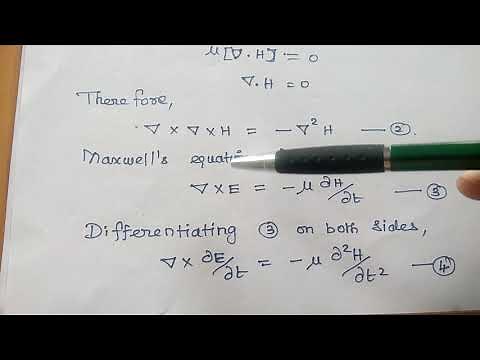 μ[∇.H] = 0
∇.H = 0
Therefore,
∇ × ∇ × H = -∇² H —②.
Maxwell's equati
∇ × E = -μ ∂H/∂t —③
Differentiating ③ on both sides,
∇ × ∂E/∂t = -μ ∂²H/∂t² —④